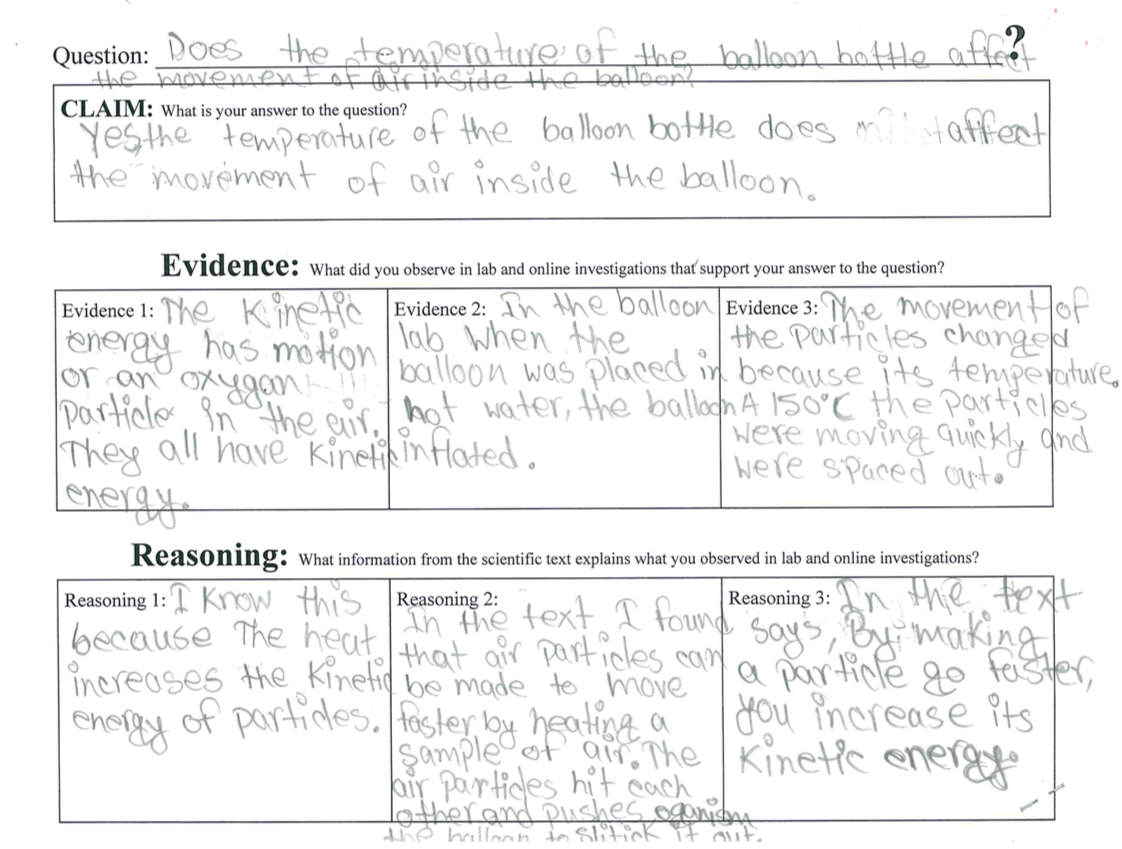 Question: Does the temperature of the balloon bottle affect ?
the movement of air inside the balloon?
CLAIM: What is your answer to the question?
Yes, the temperature of the balloon bottle does affect
the movement of air inside the balloon.
Evidence: What did you observe in lab and online investigations that support your answer to the question?
Evidence 1: The Kinetic
energy has motion
or an oxygan
particle in the air.
They all have Kinetic
energy.
Evidence 2: In the balloon
lab when the
balloon was placed in
hot water, the balloon
inflated.
Evidence 3: The movement of
the particles changed
because its temperature.
A 150°C the particles
were moving quickly and
were spaced out.
Reasoning: What information from the scientific text explains what you observed in lab and online investigations?
Reasoning 1: I Know this
because The heat
increases the Kinetic
energy of particles.
Reasoning 2:
In the text I found
that air particles can
be made to move
faster by heating a
sample of air. The
air particles hit each
other and pushes
the balloon to it out.
Reasoning 3: In the text
says, By making
a particle go faster,
you increase its
Kinetic energy.